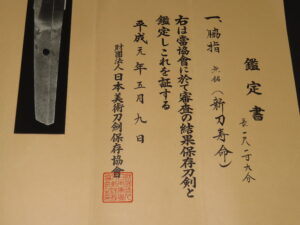 鑑定書
一、脇指 無銘(新刀寿命)
長一尺一寸九分
右は當協會に於て審査の結果保存刀剣と
鑑定しこれを証する
平成元年五月九日
財団法人日本美術刀剣保存協會